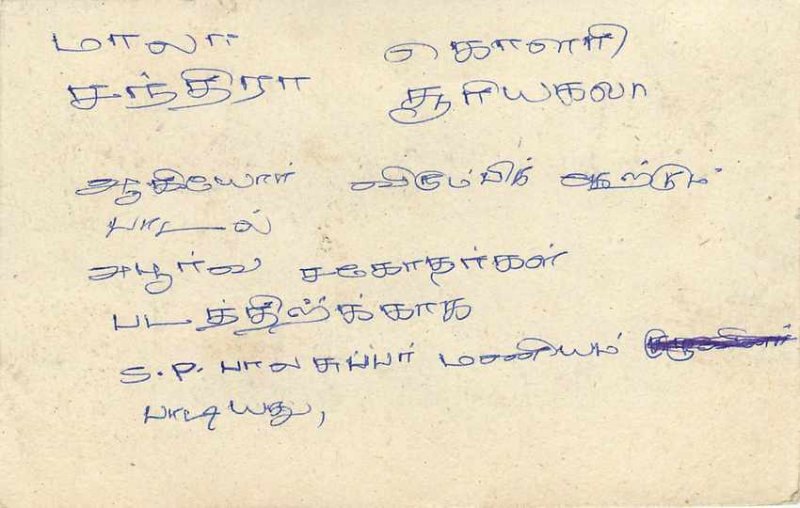 மாலா கௌரி
சந்திரா சூரியகலா
ஆகியோர் விரும்பிக் கேட்டும்
பாடல்
அபூர்வ சகோதர்கள்
படத்திற்க்காக
S.P. பாலசுப்பர் மணியம்
பாடியது,